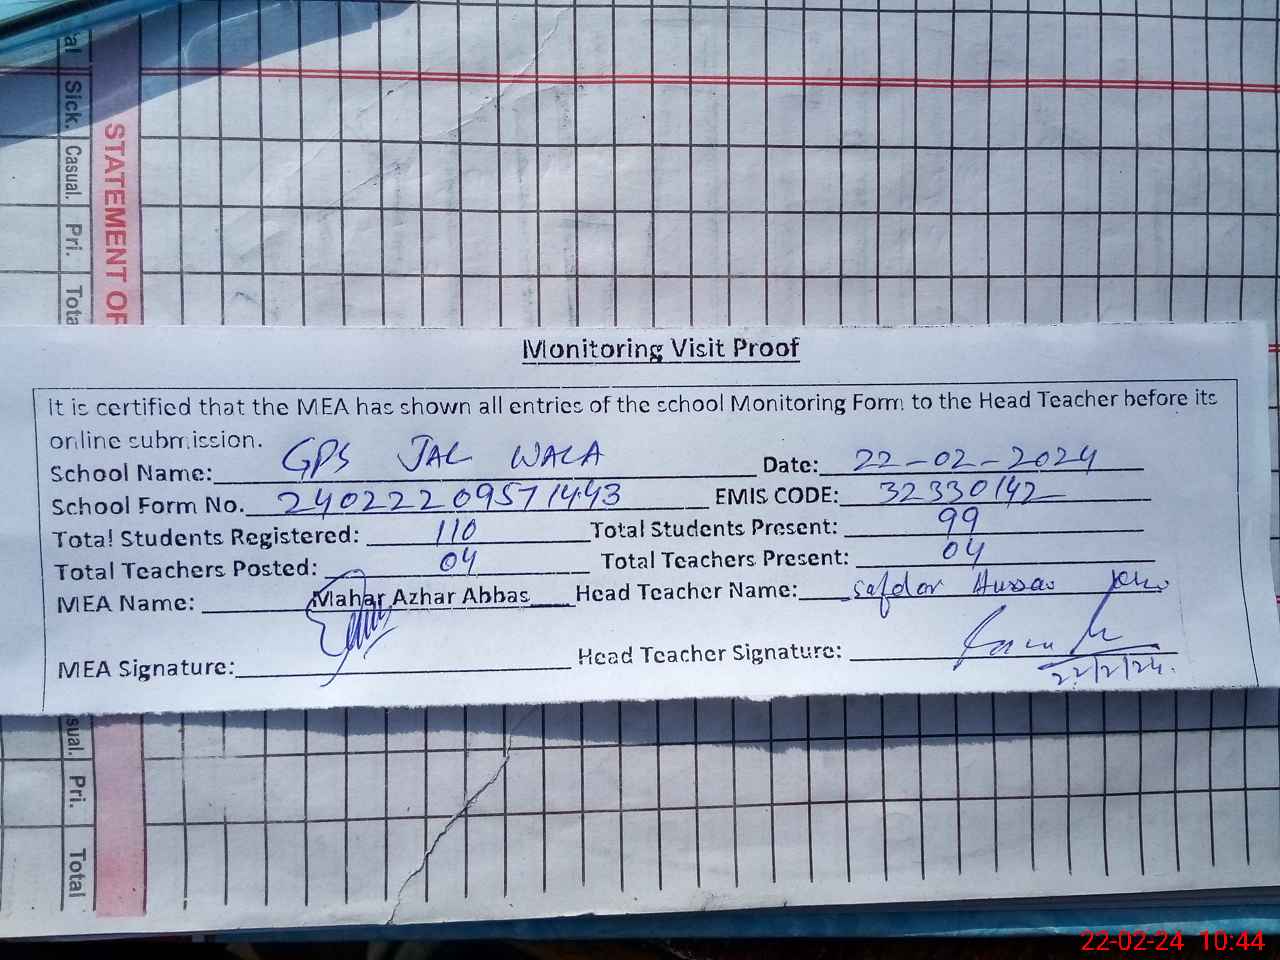 al Sick. Casual. Pri. Tota
STATEMENT OF
Monitoring Visit Proof
It is certified that the MEA has shown all entries of the school Monitoring Form to the Head Teacher before its
online submission.
School Name: GPS JAL WALA Date: 22-02-2024
School Form No. 24022209571443 EMIS CODE: 32330142
Total Students Registered: 110 Total Students Present: 99
Total Teachers Posted: 04 Total Teachers Present: 04
MEA Name: Mahar Azhar Abbas Head Teacher Name: Safdar Hussan
MEA Signature: Head Teacher Signature:
22/2/24.
sual. Pri. Total
22-02-24 10:44